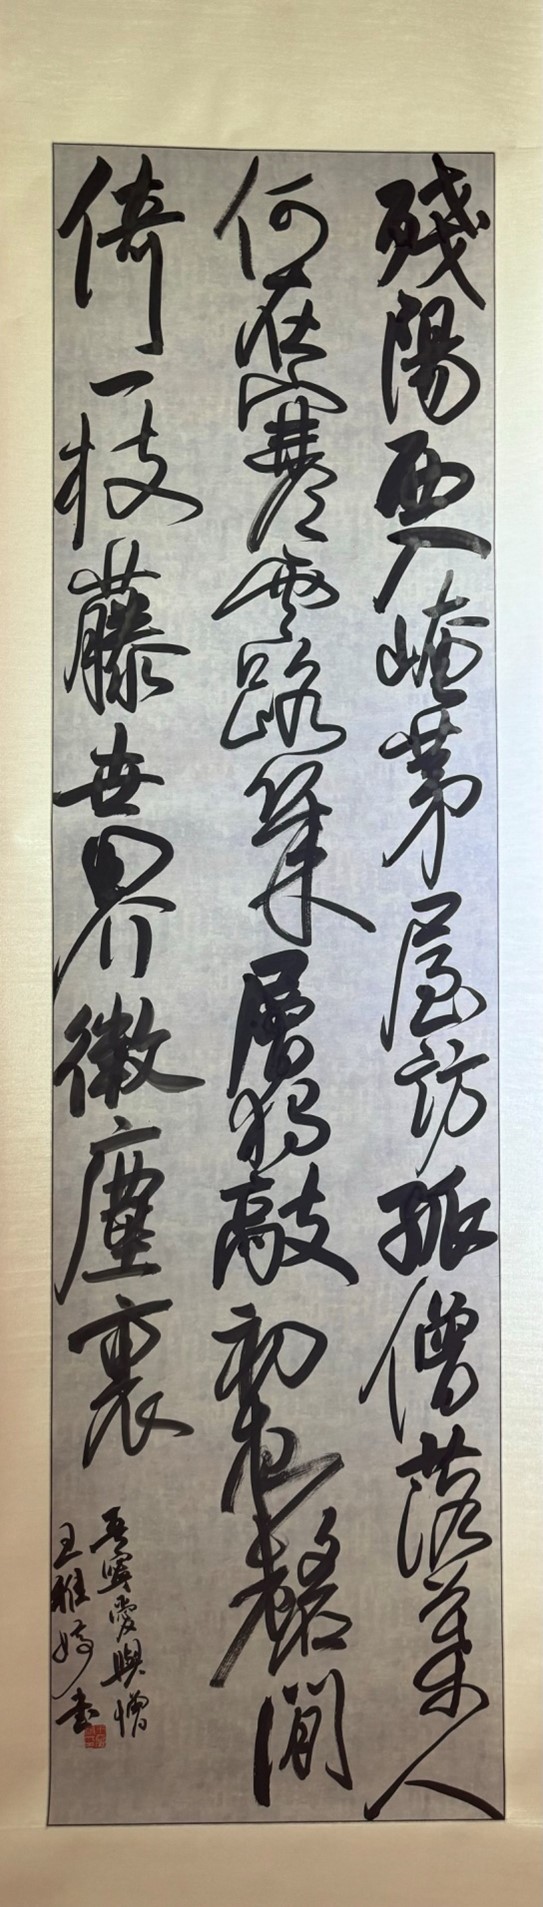 殘陽西入崦茅屋訪孤僧落葉人
何在寒雲路幾層獨敲初夜磬閒
倚一枝藤世界微塵裏
吾寧愛與憎
王雅婷書